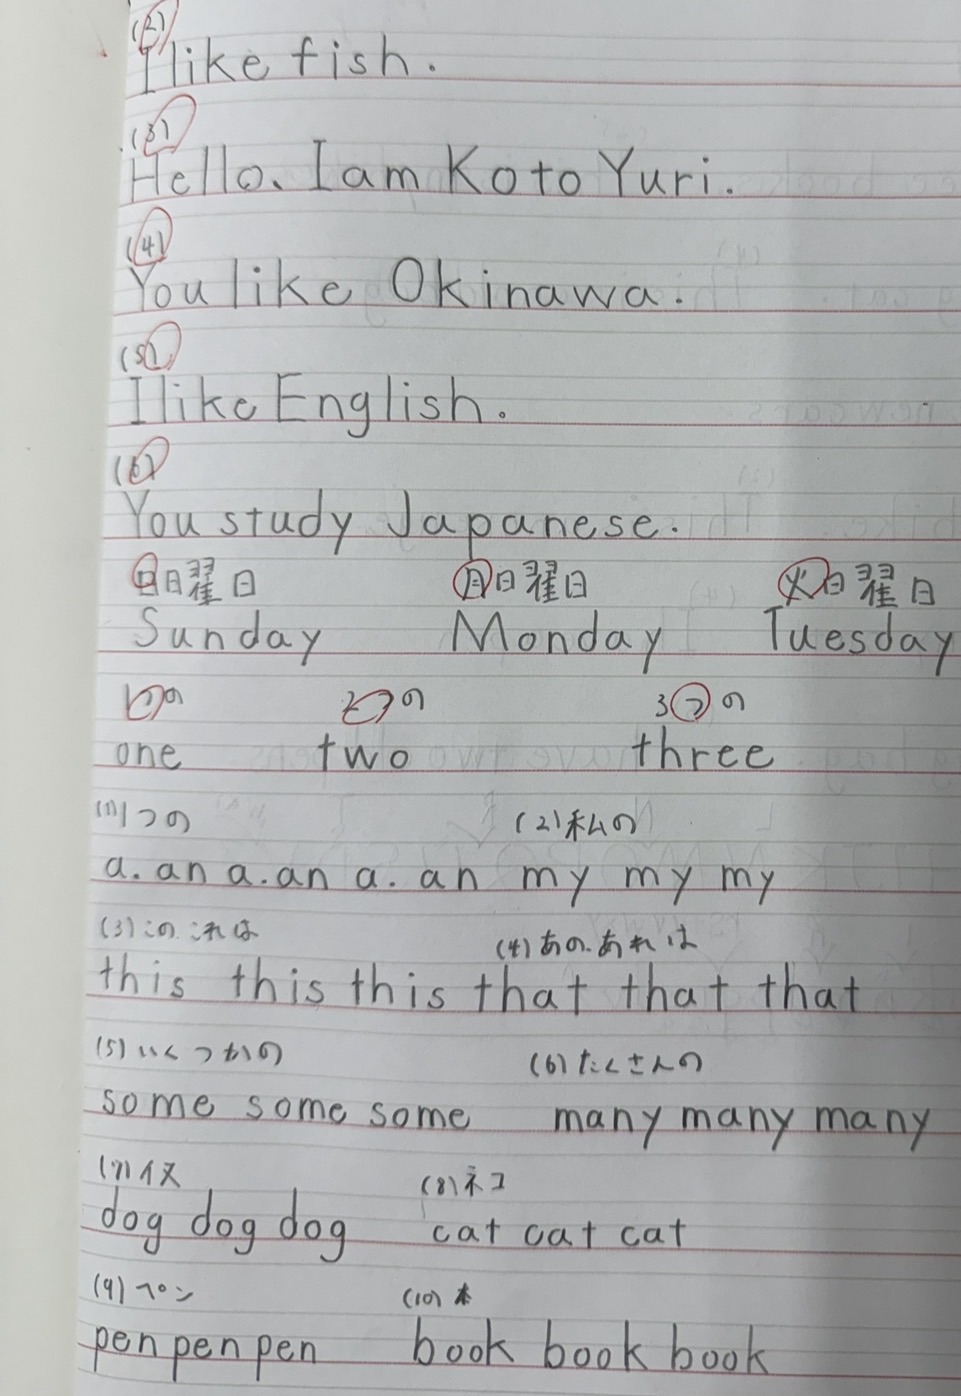 (2)
I like fish.
(3)
Hello. I am Koto Yuri.
(4)
You like Okinawa.
(5)
I like English.
(6)
You study Japanese.
日日曜日 月日曜日 火日曜日
Sunday Monday Tuesday
1つの 2つの 3つの
one two three
(1)1つの (2)私の
a. an a. an a. an my my my
(3)この これは (4)あの.あれは
this this this that that that
(5)いくつかの (6)たくさんの
some some some many many many
(7)イヌ (8)ネコ
dog dog dog cat cat cat
(9)ペン (10)本
pen pen pen book book book